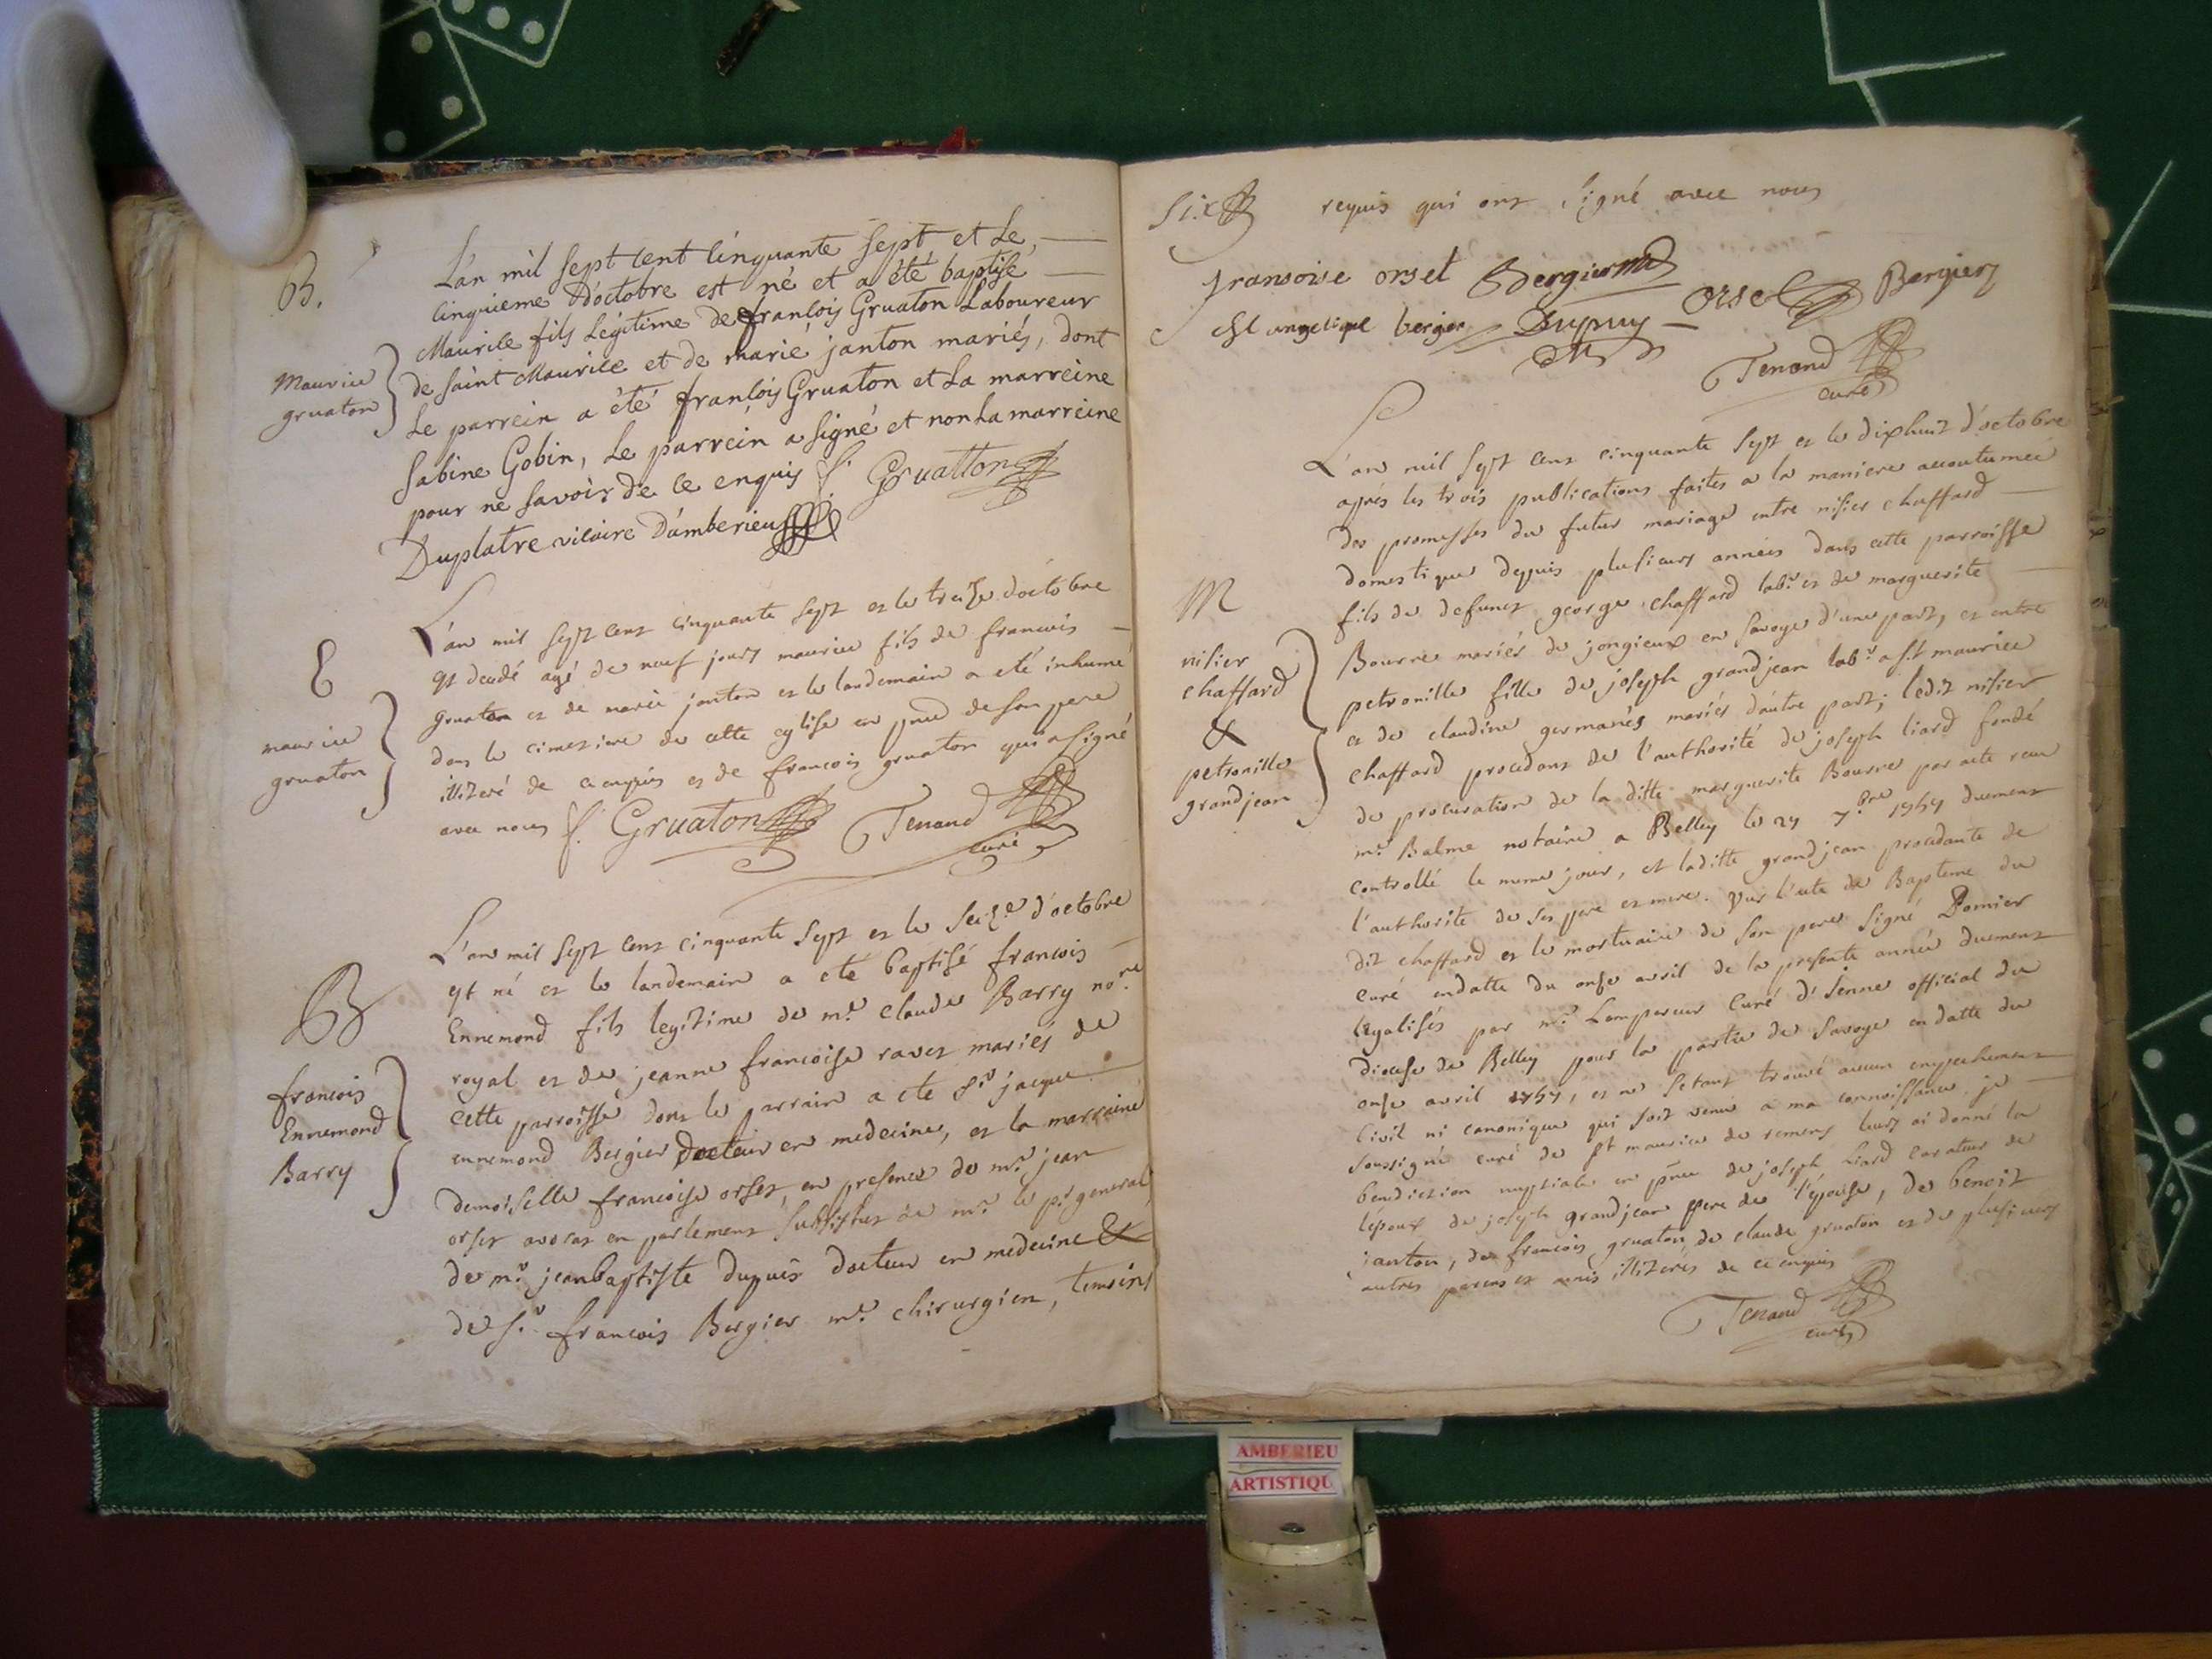 B.
Maurice
gruaton
L'an mil sept cent cinquante sept et Le
cinquieme d'octobre est né et a été baptisé
Maurice fils Légitime de françois Gruaton Laboureur
de saint Maurice et de marie janton mariés, dont
Le parrein a été françois Gruaton et La marreine
Sabine Gobin, Le parrein a signé et non La marreine
pour ne savoir de ce enquis f. Gruatton
Duplatre vicaire D'amberieu
E
maurice
gruaton
L'an mil sept cent cinquante sept et le treize d'octobre
est decedé agé de neuf jours maurice fils de francois
gruaton et de marie janton et le landemain a eté inhumé
dans le cimetiere de cette eglise en pnce de son pere
illiteré de ce enquis et de francois gruaton qui a signé
avec nous f. Gruaton Tenand
curé
B
francois
Ennemond
Barry
L'an mil sept cent cinquante sept et le seize d'octobre
est né et le landemain a eté baptisé francois
Ennemond fils legitime de mr. claude Barry nore
royal et de jeanne francoise ravet mariés de
cette parroisse dont le parrain a ete sr jacque
ennemond Bergier docteur en medecine, et la marraine
demoiselle francoise orset, en presence de mr. jean
orset avocat en parlement substitut de mr. le pr general
de mr. jeanbaptiste dupuis docteur en medecine &
de sr. francois Bergier mr. chirurgien, temoins
six requis qui ont signé avec nous
fransoise orset Bergier md orset Bergier
angelique bergier Dupuy
Tenand
curé
M
nisier
chaffard
&
petronille
grandjean
L'an mil sept cent cinquante sept et le dixhuit d'octobre
aprés les trois publications faites a la maniere accoutumée
des promesses du futur mariage entre nisier chaffard
domestique depuis plusieurs années dans cette parroisse
fils de defunct george chaffard labr. et de marguerite
Bourne mariés de jongieux en savoye d'une part, et entre
petronille fille de joseph grandjean labr. a st maurice
et de claudine germanés mariés d'autre part; ledit nisier
chaffard procedant de l'authorité de joseph liard fondé
de procuration de la ditte marguerite Bourne par acte receu
mr. Balme notaire a Belley le 27 7bre 1757 duement
controllé le meme jour, et laditte grandjean procedante de
l'authorité de ses pere et mere. Vus l'acte de Bapteme du
dit chaffard et le mortuaire de son pere signé Domier
curé endatte du onse avril de la presente année duement
legalisés par mr. Lampereur curé d'ïenne official du
diocese de Belley pour la partie de savoye en datte du
onse avril 1757, et ne setant trouvé aucun empechement
civil ni canonique qui soit venu a ma connoissance je
soussigné curé de st maurice de remens leurs ai donné la
benediction nuptiale en pnce de joseph liard curateur de
l'epoux de joseph grandjean pere de l'épouse, de benoit
janton, de francois gruaton, de claude gruaton et de plusieurs
autres parens et amis illiterés de ce enquis
Tenand
curé
AMBERIEU
ARTISTIQU